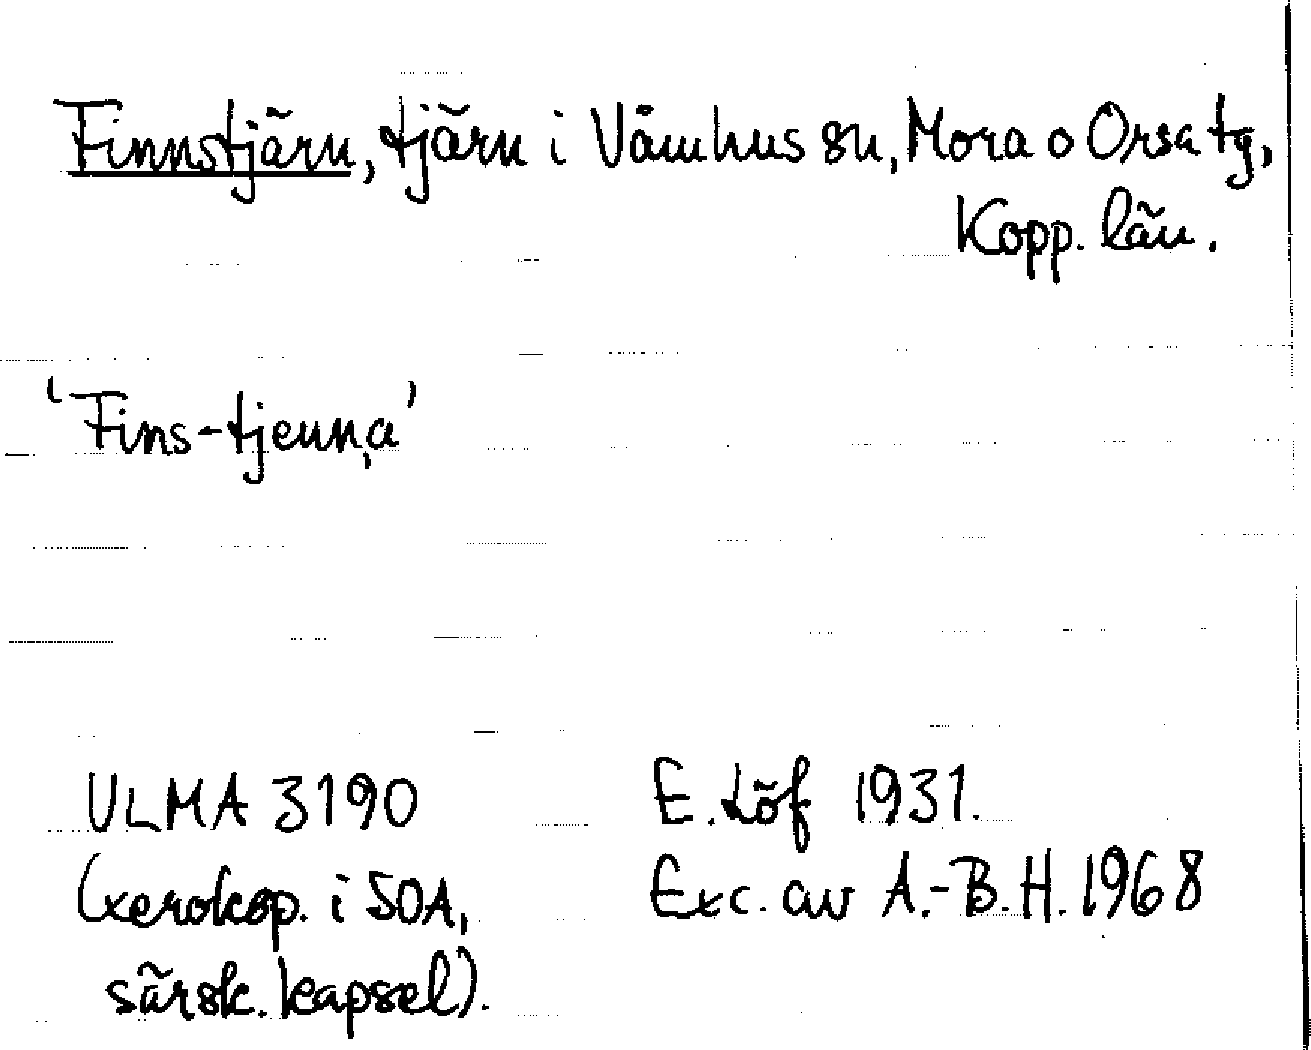 Finnstjärn, tjärn i Våmhus sn, Mora o Orsa tg,
Kopp. län.
'Fins-tjenn̩a'
ULMA 3190
E. Löf 1931.
(xerokop. i SOA,
Exc. av A.-B.H. 1968
särsk. kapsel).